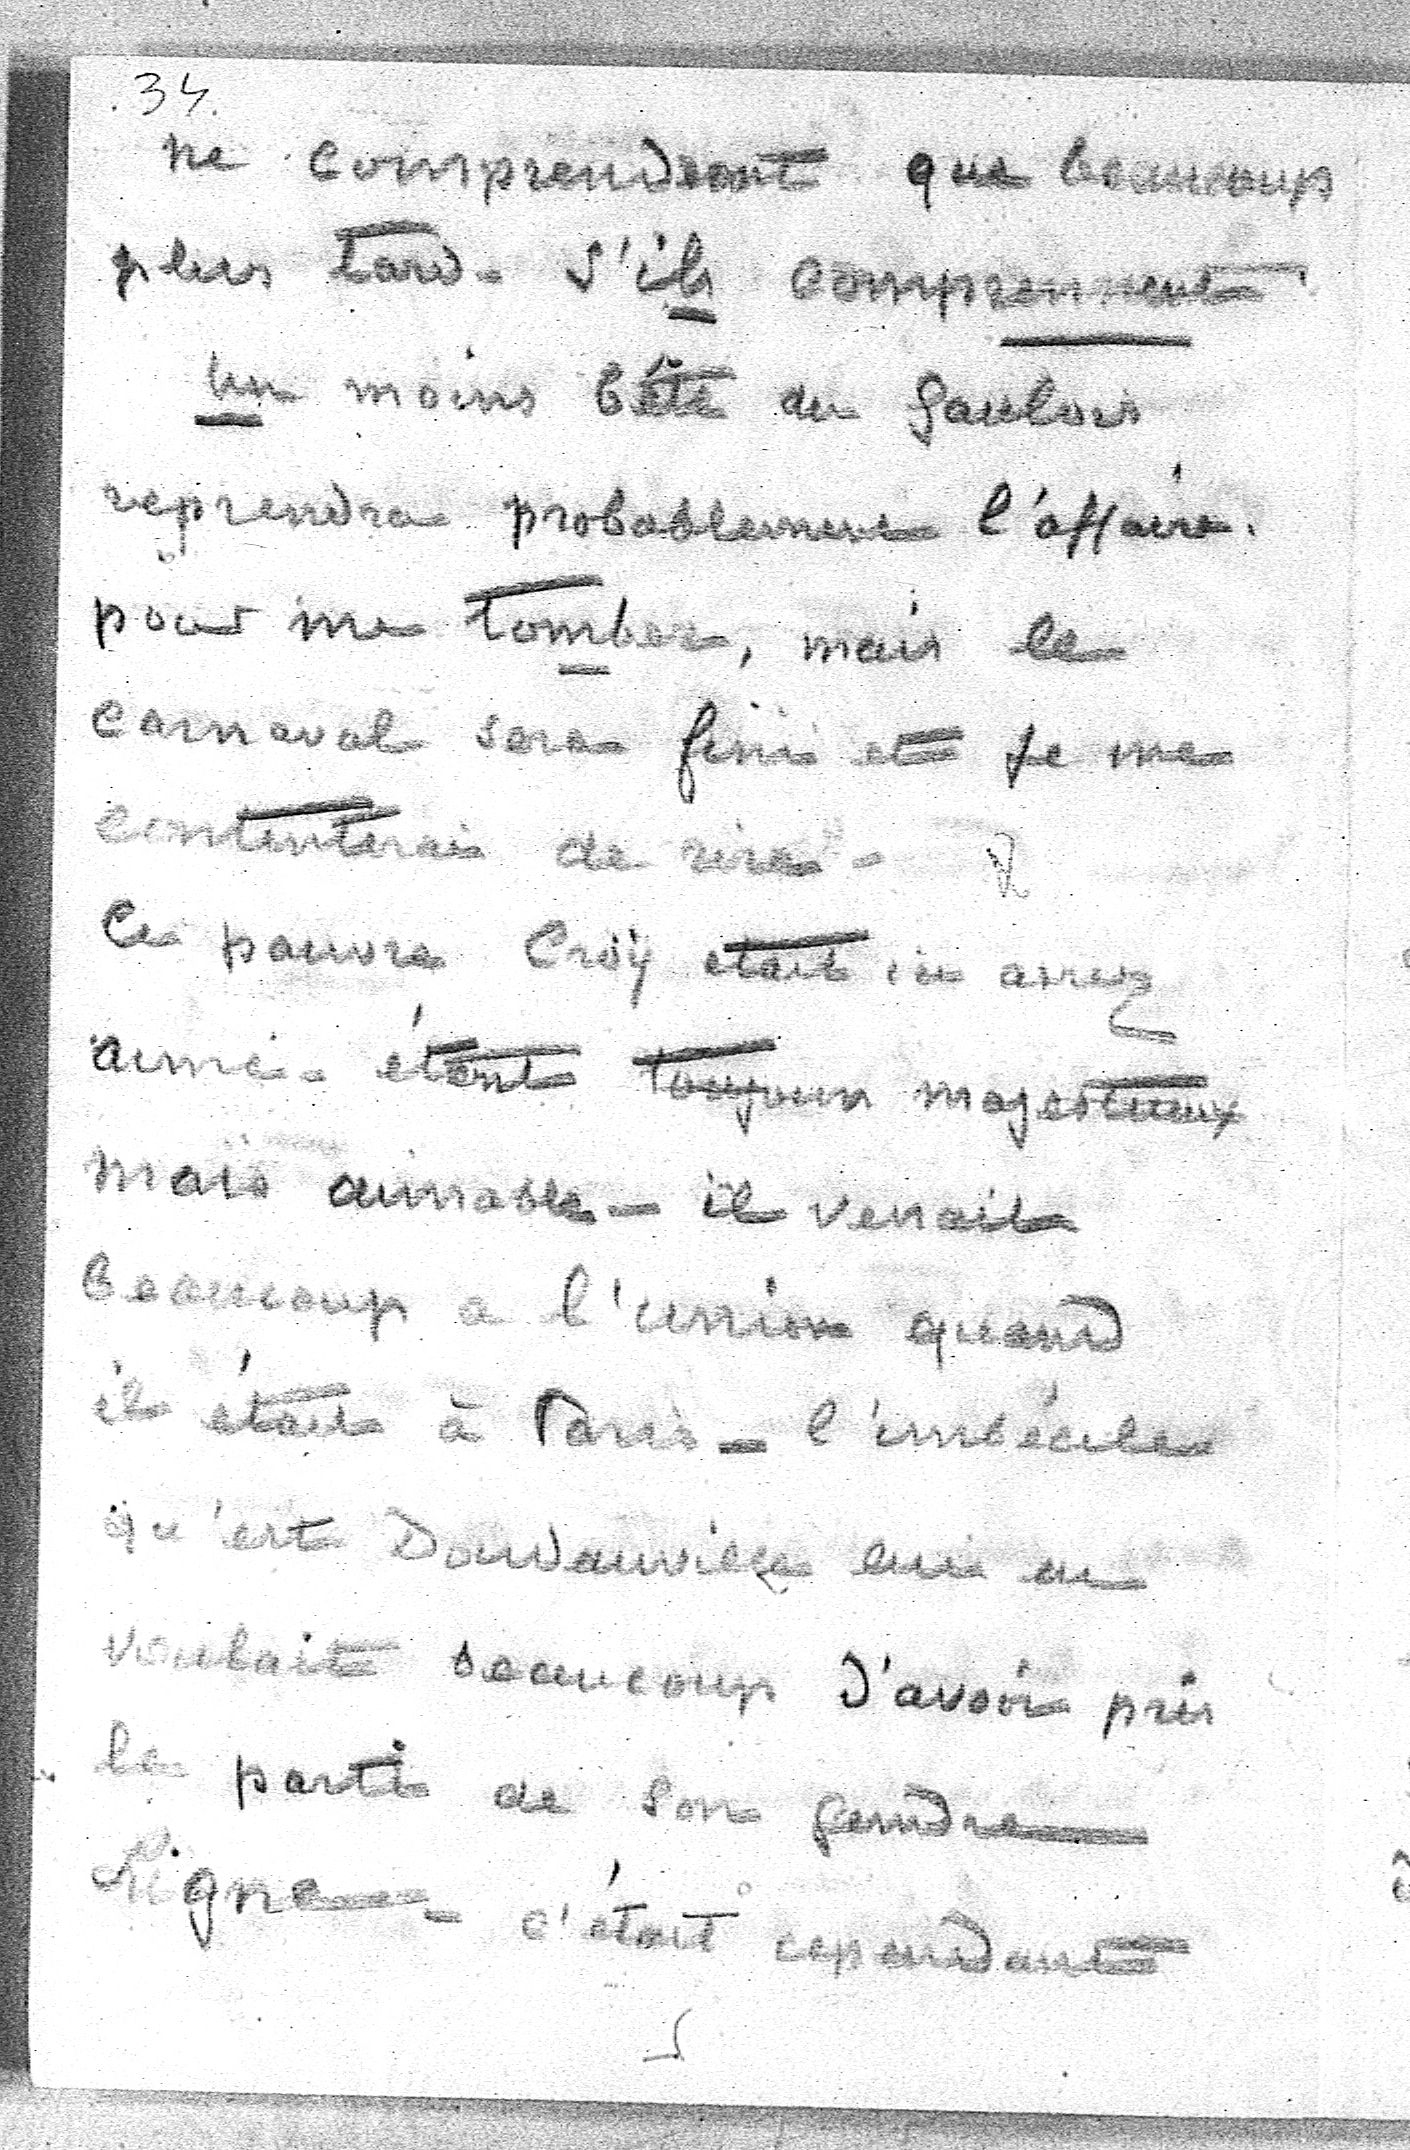 .34.
ne comprendront que beaucoup
plus tard. S'ils comprennent
un moins bête du Gaulois
reprendra probablement l'affaire.
pour me tomber, mais le
carnaval sera fini et je me
contenterai de rire -
Ce pauvre Croÿ était ici assez
aimé. étant toujours majestueux
mais aimable - il venait
beaucoup a l'union quand
il était à Paris - l'imbécile
qu'est Doudauville lui en
voulait beaucoup d'avoir pris
le parti de son gendre
Ligne - c'était cependant